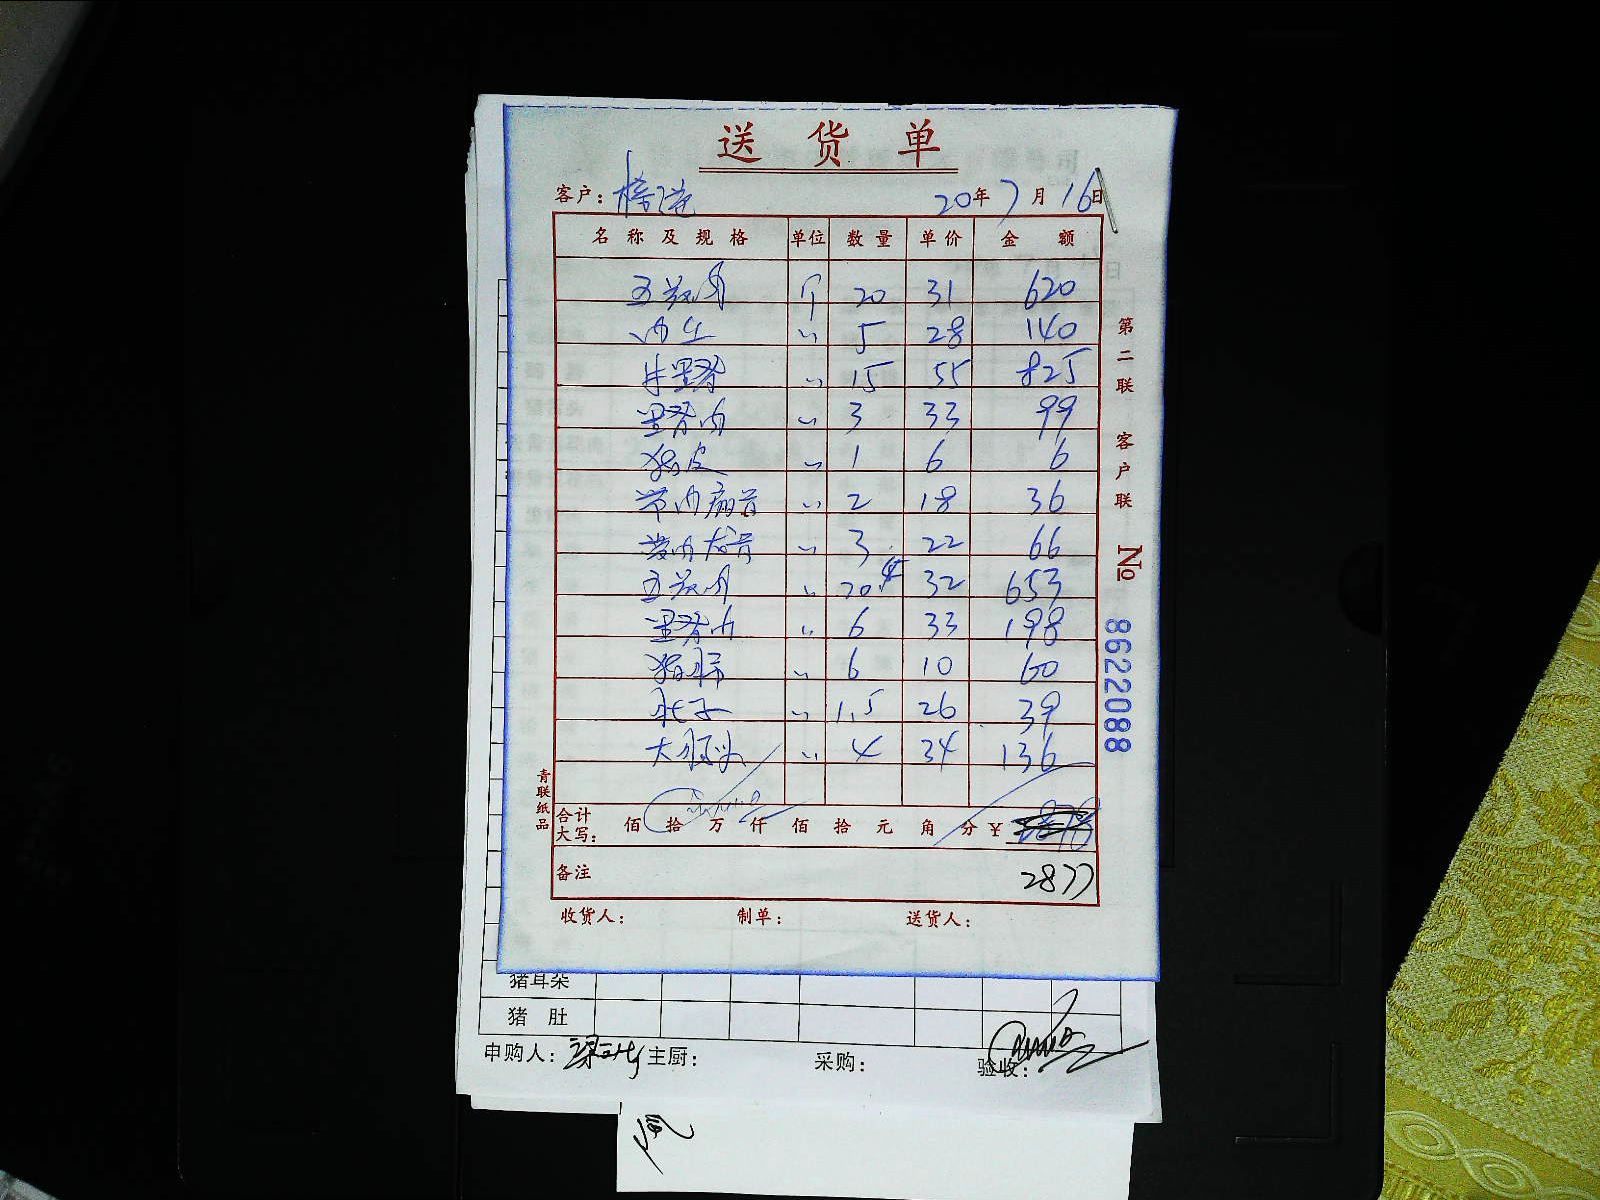 送货单
客户: 20年7月16日
名称及规格 单位 数量 单价 金额
五花肉 个 20 31 620
肉 〃 5 28 140
牛里脊 〃 15 55 825
里脊肉 〃 3 33 99
猪皮 〃 1 6 6
带肉扇骨 〃 2 18 36
带肉龙骨 〃 3 22 66
五花肉 〃 20.4 32 653
里脊肉 〃 6 33 198
猪蹄 〃 6 10 60
肚子 〃 1.5 26 39
大 〃 4 34 136
合计
大写: 佰 拾 万 仟 佰 拾 元 角 分 ¥
备注 2877
收货人: 制单: 送货人:
第二联 客户联 No 8622088
青联纸品
猪耳朵
猪肚
申购人: 主厨: 采购: 验收: